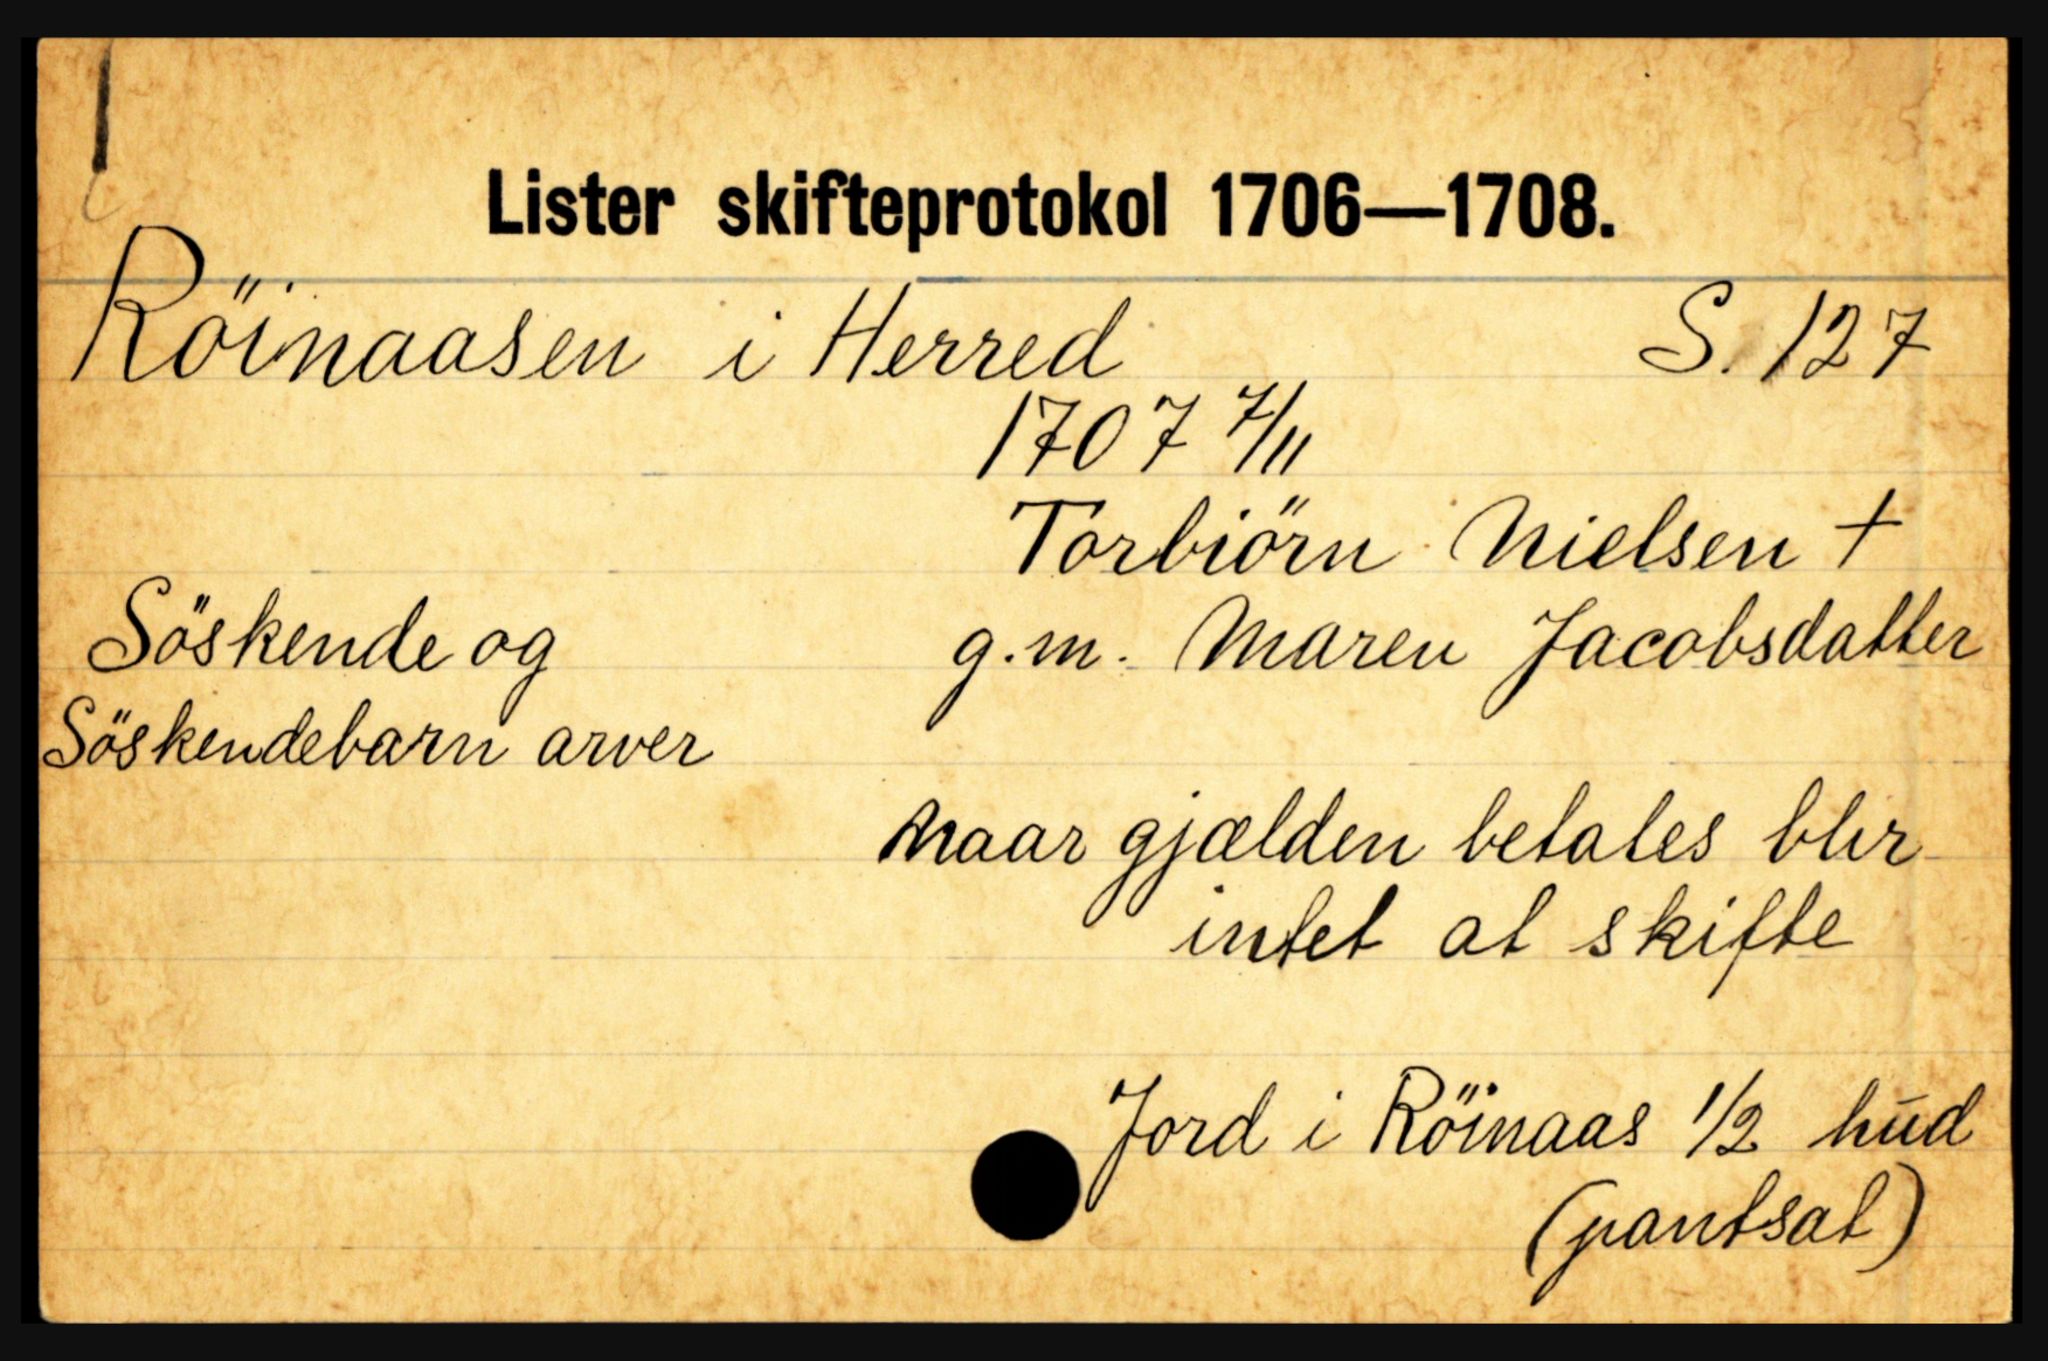 Lister skifteprotokol 1706—1708.
Röinaasen i Herred S. 127
1707 7/11
Torbiörn Nielsen †
Söskende og g.m. Maren Jacobsdatter
Söskendebarn arver
Naar gjælden betales blir
intet at skifte
Jord i Röinaas 1/2 hud
(pantsat)